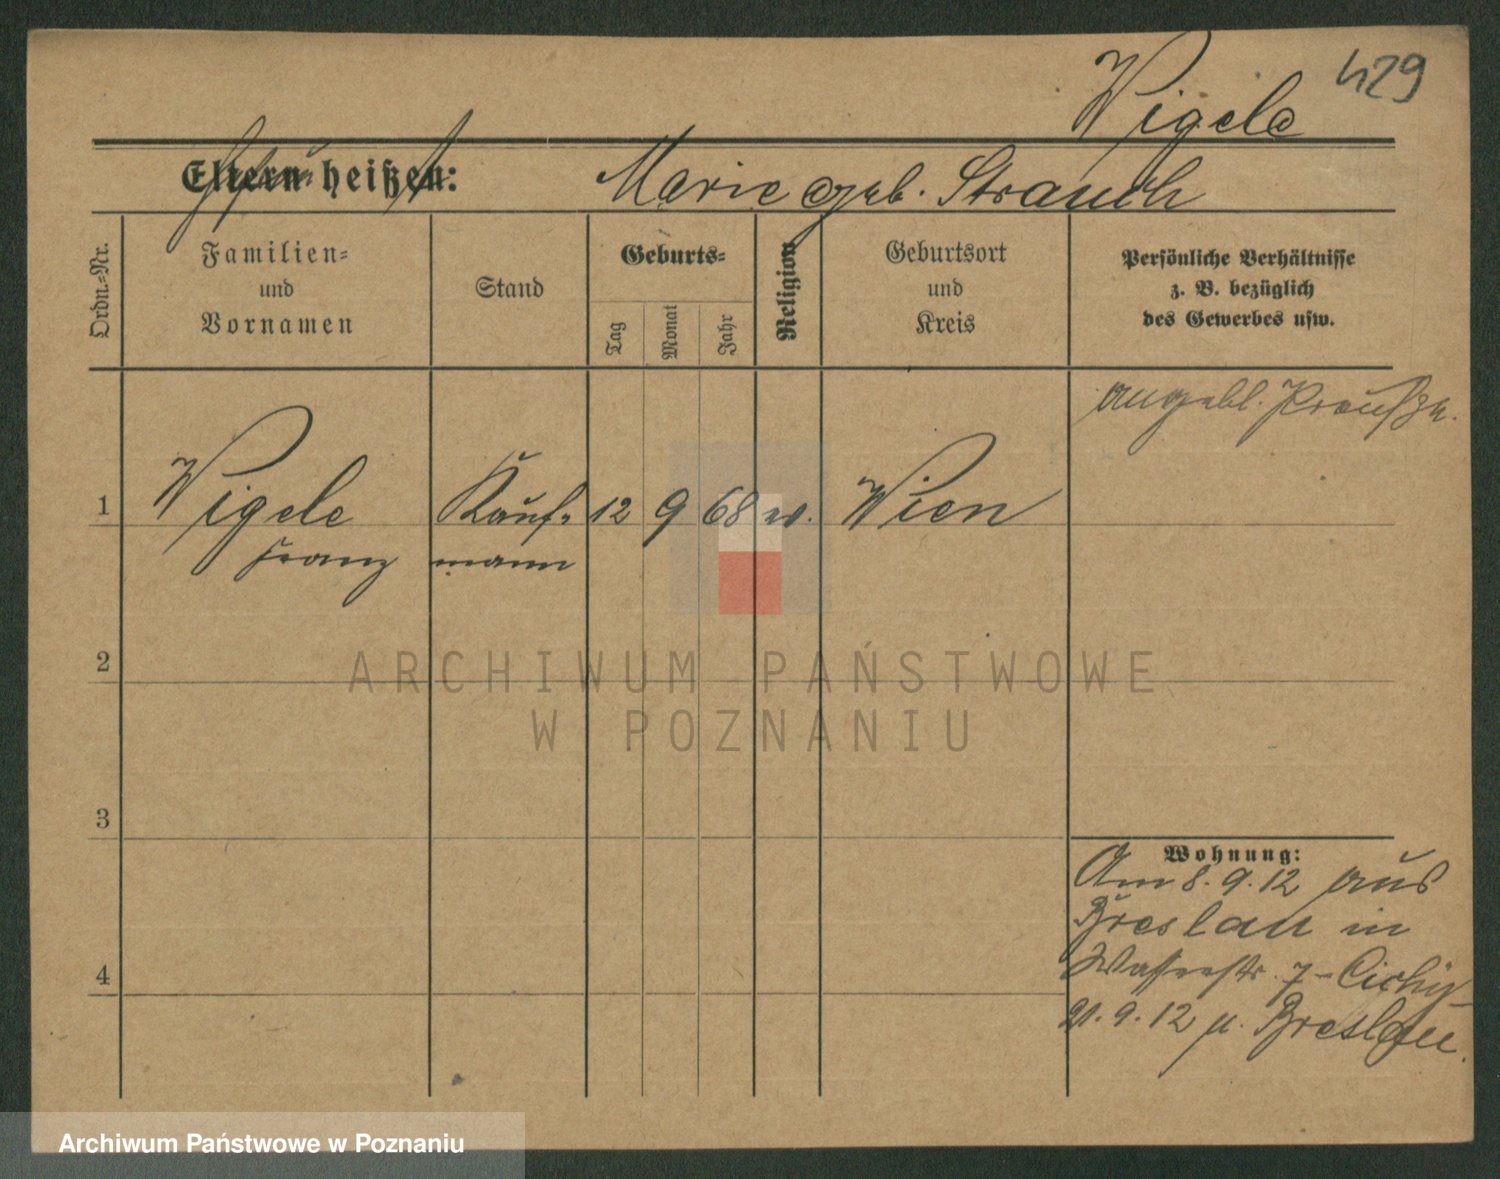 Wigele 429
Eltern heißen: Marie geb. Strauch
Ordn.-Nr.
Familien-
und
Vornamen
Stand
Geburts-
Tag
Monat
Jahr
Religion
Geburtsort
und
Kreis
Persönliche Verhältnisse
z. B. bezüglich
des Gewerbes usw.
angebl. Preuße.
1 Wigele Kauf- 12 9 68 ev. Wien
Franz mann
2
3
4
Wohnung:
Am 8.9.12 aus
Breslau in
Wasserstr. 7 - Cichy -
21.9.12 n. Breslau.
ARCHIWUM PAŃSTWOWE
W POZNANIU
Archiwum Państwowe w Poznaniu